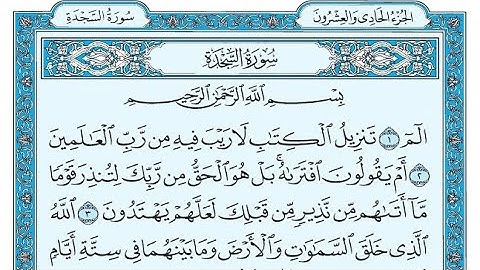 الجُزءُ الحَادِي وَالعِشْرُونَ
سُورَةُ السَّجْدَةِ
سُورَةُ السَّجْدَةِ
بِسْمِ اللَّهِ الرَّحْمَٰنِ الرَّحِيمِ
الٓمٓ ١ تَنزِيلُ الْكِتَٰبِ لَا رَيْبَ فِيهِ مِن رَّبِّ الْعَٰلَمِينَ
٢ أَمْ يَقُولُونَ افْتَرَىٰهُ ۚ بَلْ هُوَ الْحَقُّ مِن رَّبِّكَ لِتُنذِرَ قَوْمًا
مَّآ أَتَىٰهُم مِّن نَّذِيرٍ مِّن قَبْلِكَ لَعَلَّهُمْ يَهْتَدُونَ ٣ اللَّهُ
الَّذِي خَلَقَ السَّمَٰوَٰتِ وَالْأَرْضَ وَمَا بَيْنَهُمَا فِي سِتَّةِ أَيَّامٍ